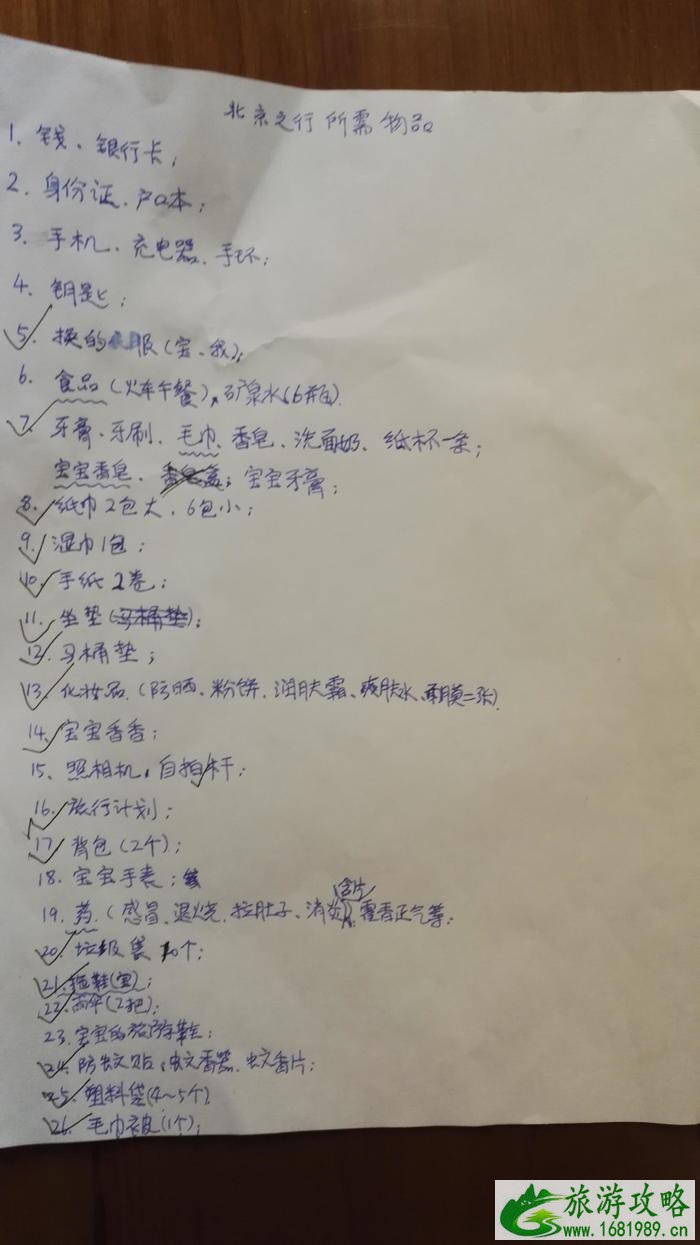 北京之行所需物品
1、钱、银行卡;
2、身份证、户口本;
3、手机、充电器、手环;
4、钥匙;
5、换的 服(宝、我);
6、食品(火车午餐)、矿泉水(6瓶)。
7、牙膏、牙刷、毛巾、香皂、洗面奶、纸杯一条;
宝宝香皂、香皂盒;宝宝牙膏;
8、纸巾2包大、6包小;
9、湿巾1包;
10、手纸2卷;
11、坐垫(马桶垫);
12、马桶垫;
13、化妆品(防晒、粉饼、润肤霜、爽肤水、面膜二张)
14、宝宝香香;
15、照相机、自拍杆;
16、旅行计划;
17、背包(2个);
18、宝宝手表;
19、药(感冒、退烧、拉肚子、消炎、含片)、藿香正气等;
20、垃圾袋10个;
21、拖鞋(宝);
22、雨伞(2把);
23、宝宝的旅游鞋;
24、防蚊贴、蚊香器、蚊香片;
25、塑料袋(4~5个)
26、毛巾被(1个);
旅游攻略
www.1681989.cn